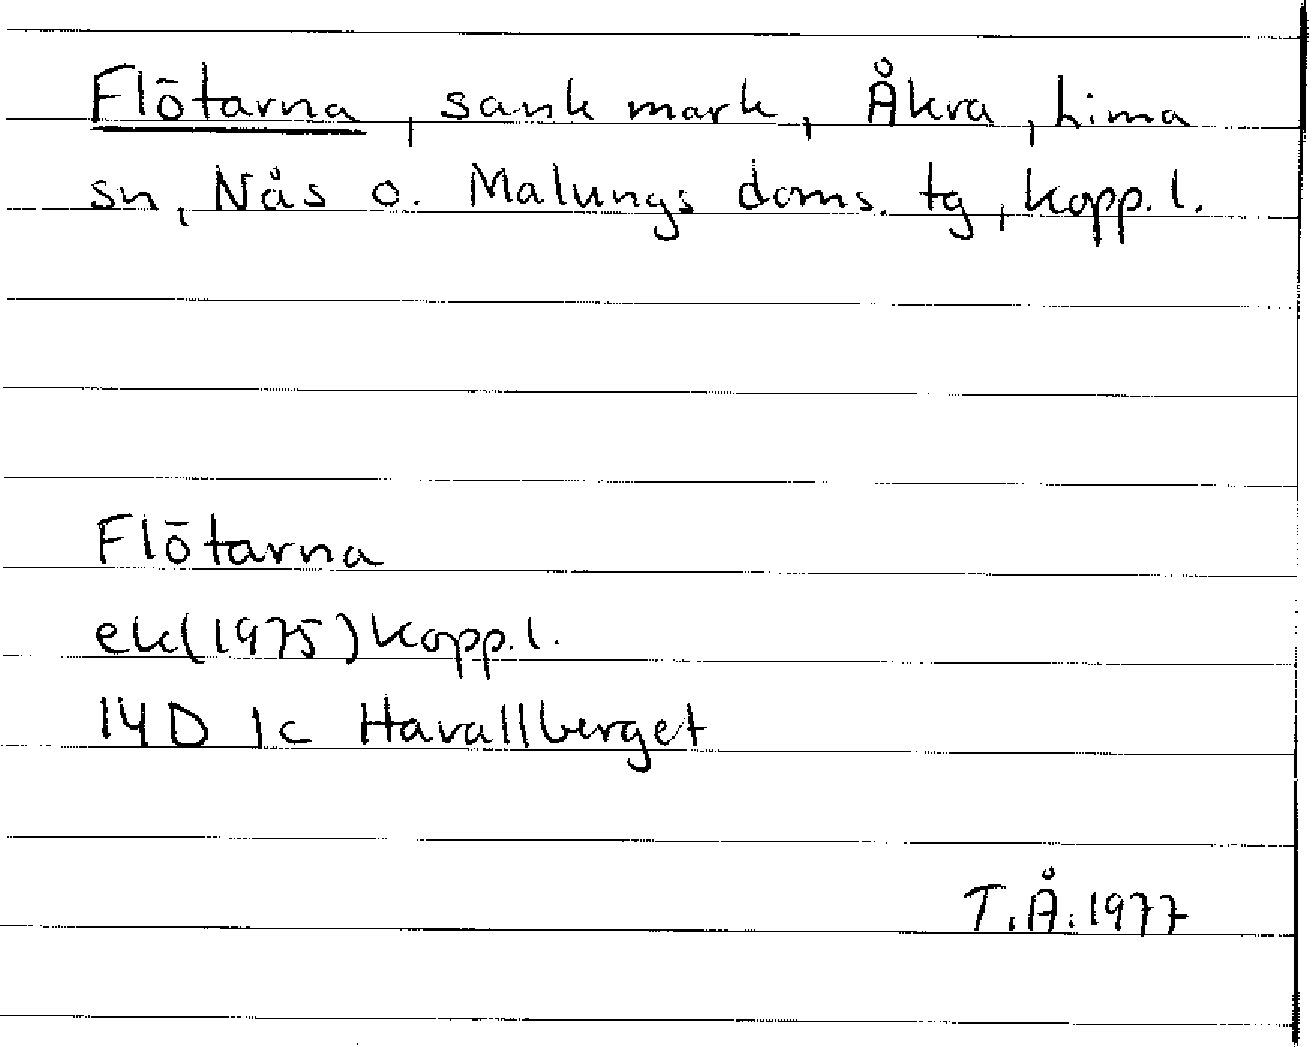 Flötarna, sank mark, Åkra, Lima
sn, Nås o. Malungs doms. tg, Kopp. l.
Flötarna
ek(1975) Kopp. l.
14D 1c Havallberget
T.Å. 1977